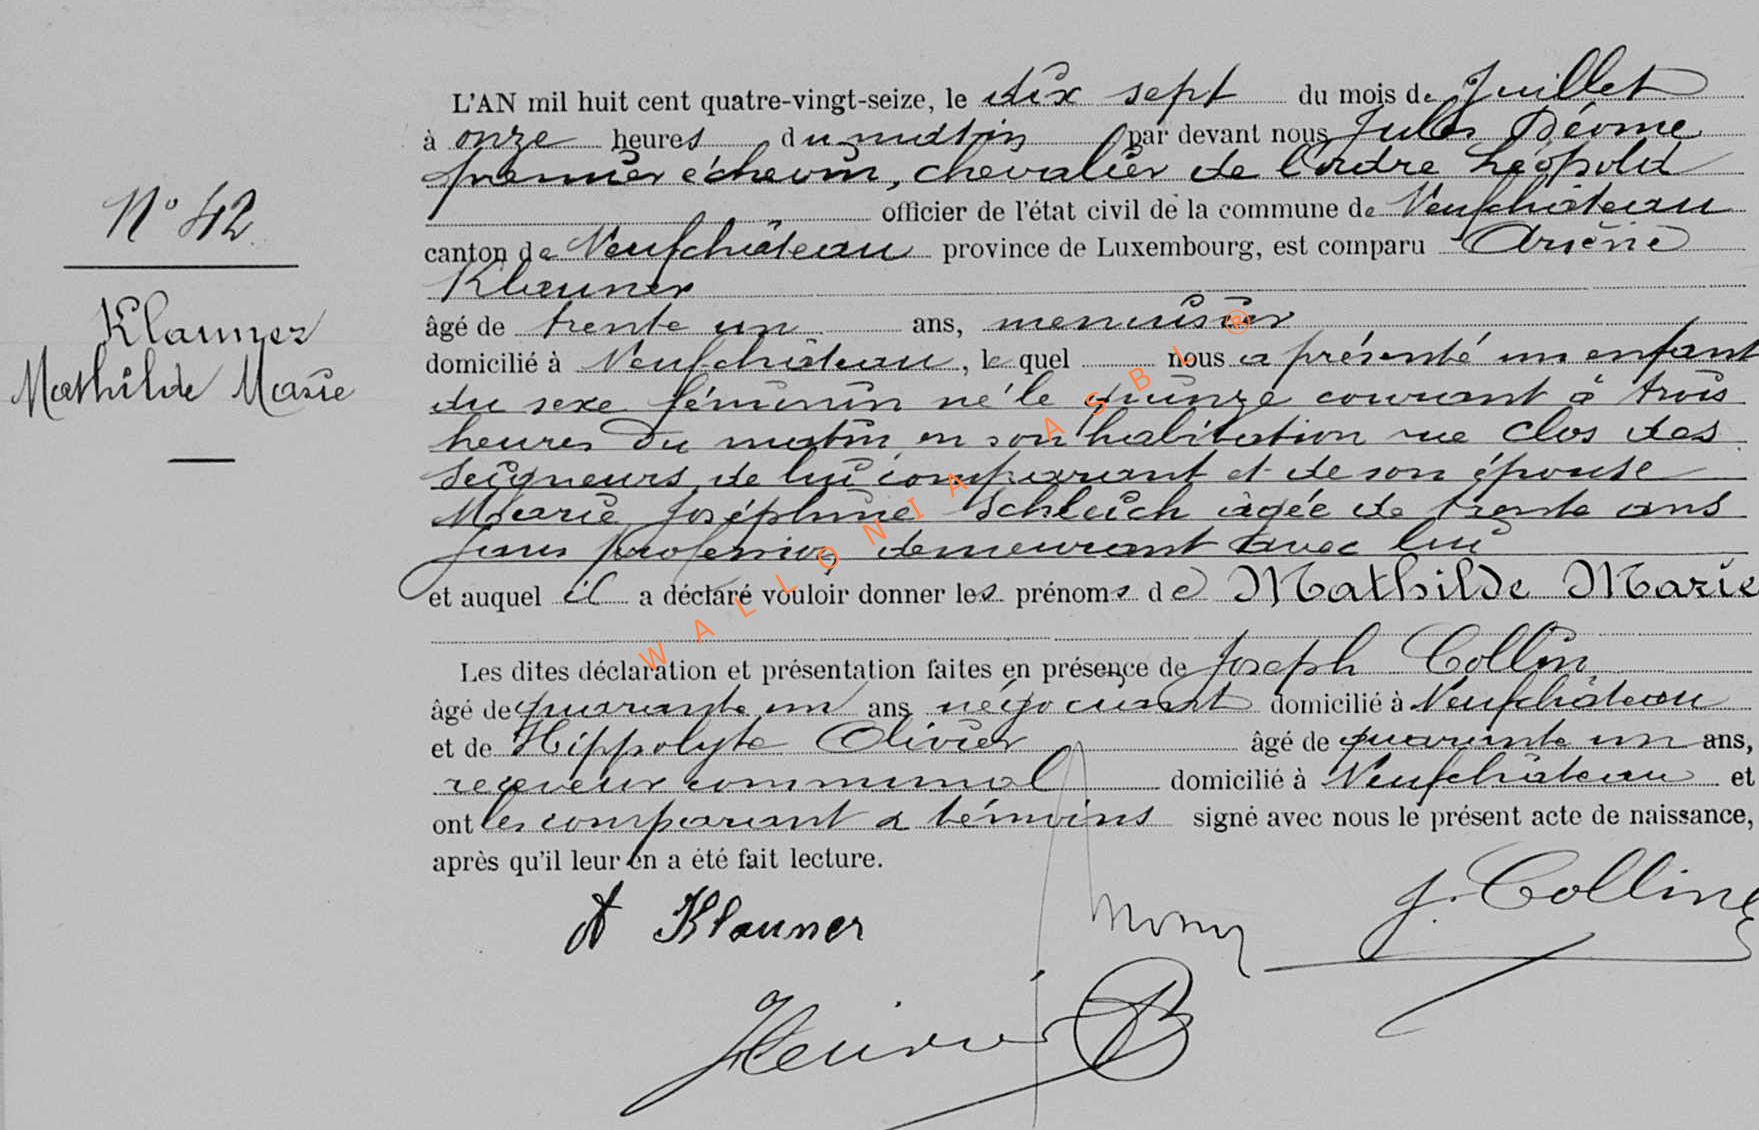 N° 42
Klauner
Mathilde Marie
L'AN mil huit cent quatre-vingt-seize, le dix sept du mois de Juillet
à onze heures du matin par devant nous Jules Déome
premier échevin, chevalier de l'ordre Léopold
officier de l'état civil de la commune de Neufchâteau
canton de Neufchâteau province de Luxembourg, est comparu Arsène
Klauner
âgé de trente un ans, menuisier
domicilié à Neufchâteau, le quel nous a présenté un enfant
du sexe féminin né le quinze courant à trois
heures du matin en son habitation rue Clos des
Seigneurs, de lui comparant et de son épouse
Marie Joséphine Schleich âgée de trente ans
sans profession demeurant avec lui
et auquel il a déclaré vouloir donner les prénoms de Mathilde Marie
Les dites déclaration et présentation faites en présence de Joseph Collin
âgé de quarante un ans négociant domicilié à Neufchâteau
et de Hippolyte Olivier âgé de quarante un ans,
receveur communal domicilié à Neufchâteau et
ont les comparant & témoins signé avec nous le présent acte de naissance,
après qu'il leur en a été fait lecture.
A Klauner
J. Collin
WALLONIA ASBL ®